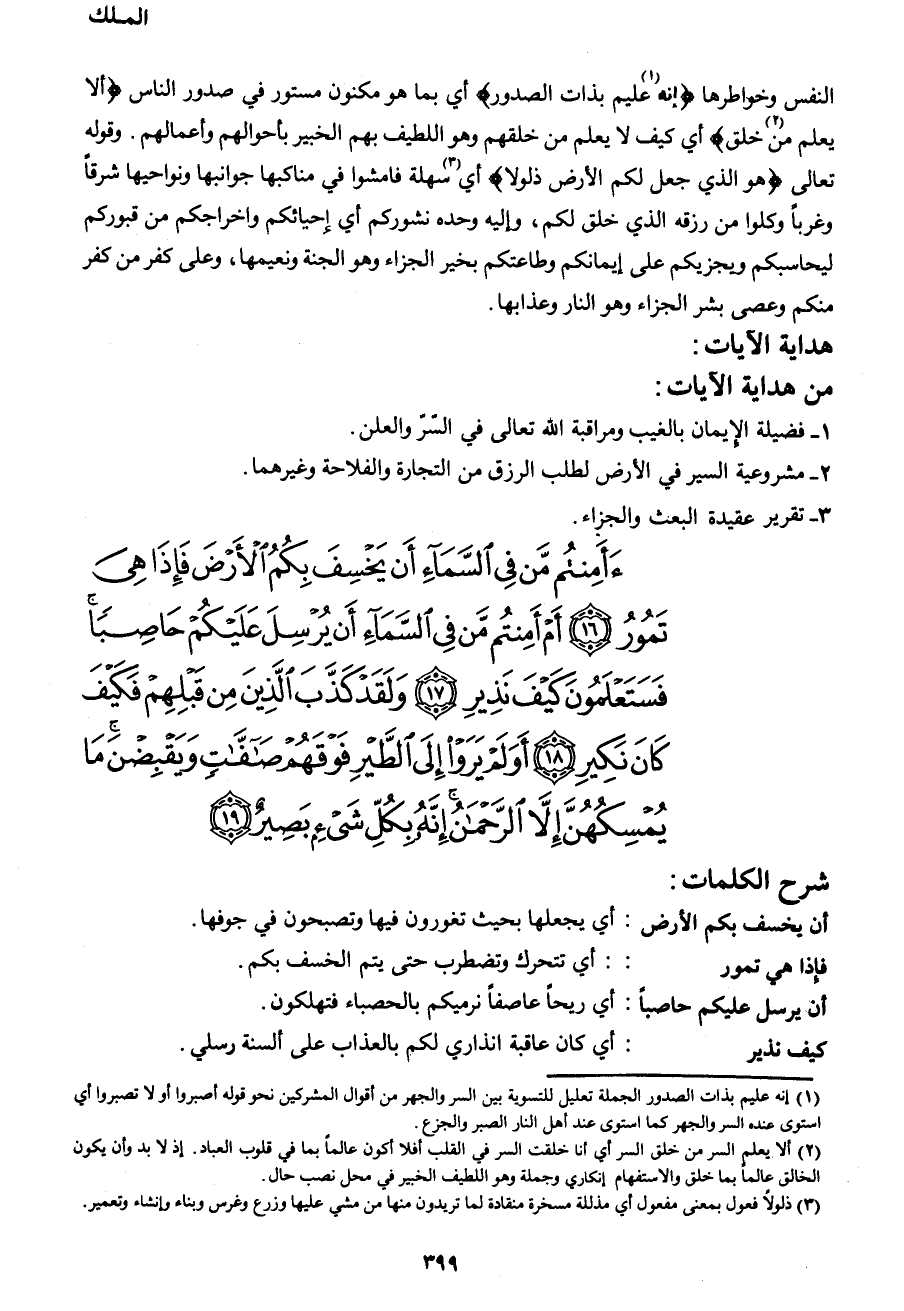 الملك
النفس وخواطرها ﴿إنه(١) عليم بذات الصدور﴾ أي بما هو مكنون مستور في صدور الناس ﴿ألا
يعلم من(٢) خلق﴾ أي كيف لا يعلم من خلقهم وهو اللطيف بهم الخبير بأحوالهم وأعمالهم. وقوله
تعالى ﴿هو الذي جعل لكم الأرض ذلولا﴾ أي(٣) سهلة فامشوا في مناكبها جوانبها ونواحيها شرقاً
وغرباً وكلوا من رزقه الذي خلق لكم، وإليه وحده نشوركم أي إحيائكم واخراجكم من قبوركم
ليحاسبكم ويجزيكم على إيمانكم وطاعتكم بخير الجزاء وهو الجنة ونعيمها، وعلى كفر من كفر
منكم وعصى بشر الجزاء وهو النار وعذابها.
هداية الآيات:
من هداية الآيات:
١ـ فضيلة الإيمان بالغيب ومراقبة الله تعالى في السّرّ والعلن.
٢ـ مشروعية السير في الأرض لطلب الرزق من التجارة والفلاحة وغيرهما.
٣ـ تقرير عقيدة البعث والجزاء.
ءَأَمِنتُم مَّن فِى ٱلسَّمَآءِ أَن يَخْسِفَ بِكُمُ ٱلْأَرْضَ فَإِذَا هِىَ
تَمُورُ ١٦ أَمْ أَمِنتُم مَّن فِى ٱلسَّمَآءِ أَن يُرْسِلَ عَلَيْكُمْ حَاصِبًا ۖ
فَسَتَعْلَمُونَ كَيْفَ نَذِيرِ ١٧ وَلَقَدْ كَذَّبَ ٱلَّذِينَ مِن قَبْلِهِمْ فَكَيْفَ
كَانَ نَكِيرِ ١٨ أَوَلَمْ يَرَوْا۟ إِلَى ٱلطَّيْرِ فَوْقَهُمْ صَٰٓفَّٰتٍ وَيَقْبِضْنَ ۚ مَا
يُمْسِكُهُنَّ إِلَّا ٱلرَّحْمَٰنُ ۚ إِنَّهُۥ بِكُلِّ شَىْءٍۭ بَصِيرٌ ١٩
شرح الكلمات:
أن يخسف بكم الأرض : أي يجعلها بحيث تغورون فيها وتصبحون في جوفها.
فإذا هي تمور : : أي تتحرك وتضطرب حتى يتم الخسف بكم.
أن يرسل عليكم حاصباً : أي ريحاً عاصفاً نرميكم بالحصباء فتهلكون.
كيف نذير : أي كان عاقبة انذاري لكم بالعذاب على ألسنة رسلي.
(١) إنه عليم بذات الصدور الجملة تعليل للتسوية بين السر والجهر من أقوال المشركين نحو قوله أصبروا أو لا تصبروا أي
استوى عنده السر والجهر كما استوى عند أهل النار الصبر والجزع.
(٢) ألا يعلم السر من خلق السر أي أنا خلقت السر في القلب أفلا أكون عالماً بما في قلوب العباد. إذ لا بد وأن يكون
الخالق عالماً بما خلق والاستفهام إنكاري وجملة وهو اللطيف الخبير في محل نصب حال.
(٣) ذلولاً فعول بمعنى مفعول أي مذللة مسخرة منقادة لما تريدون منها من مشي عليها وزرع وغرس وبناء وإنشاء وتعمير.
٣٩٩